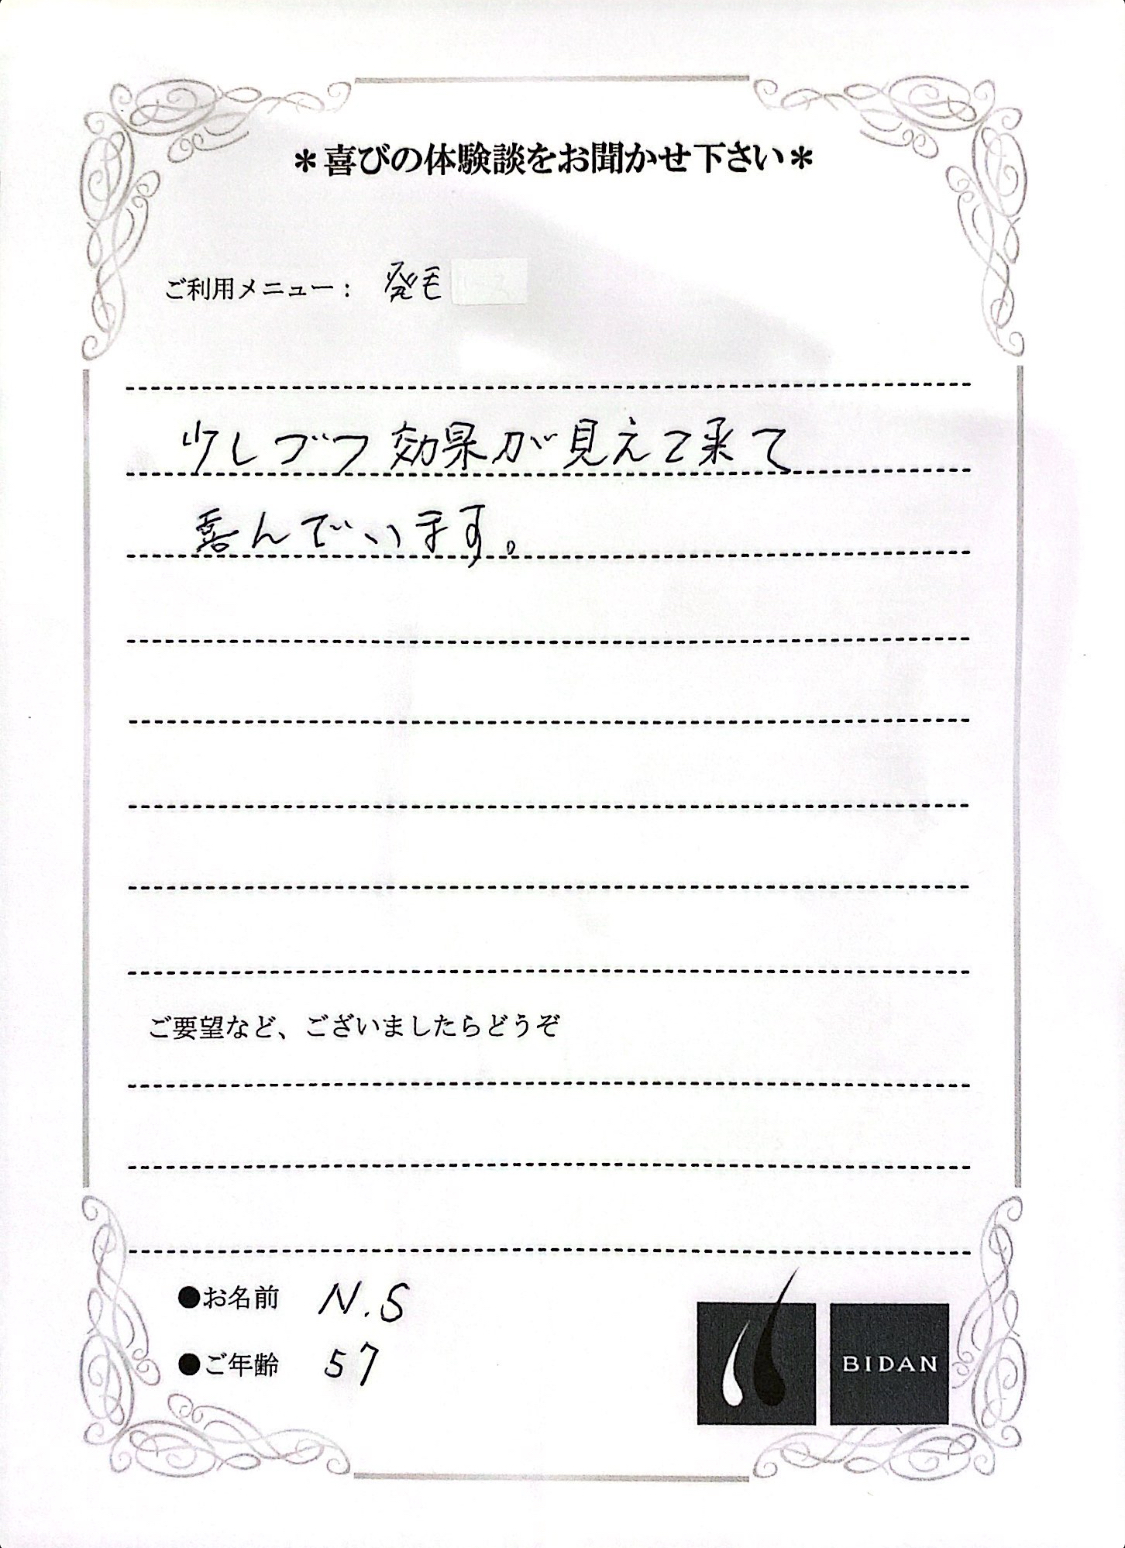 ＊喜びの体験談をお聞かせ下さい＊
ご利用メニュー： 発毛
少しづつ効果が見えて来て
喜んでいます。
ご要望など、ございましたらどうぞ
●お名前 N.S
●ご年齢 57
BIDAN